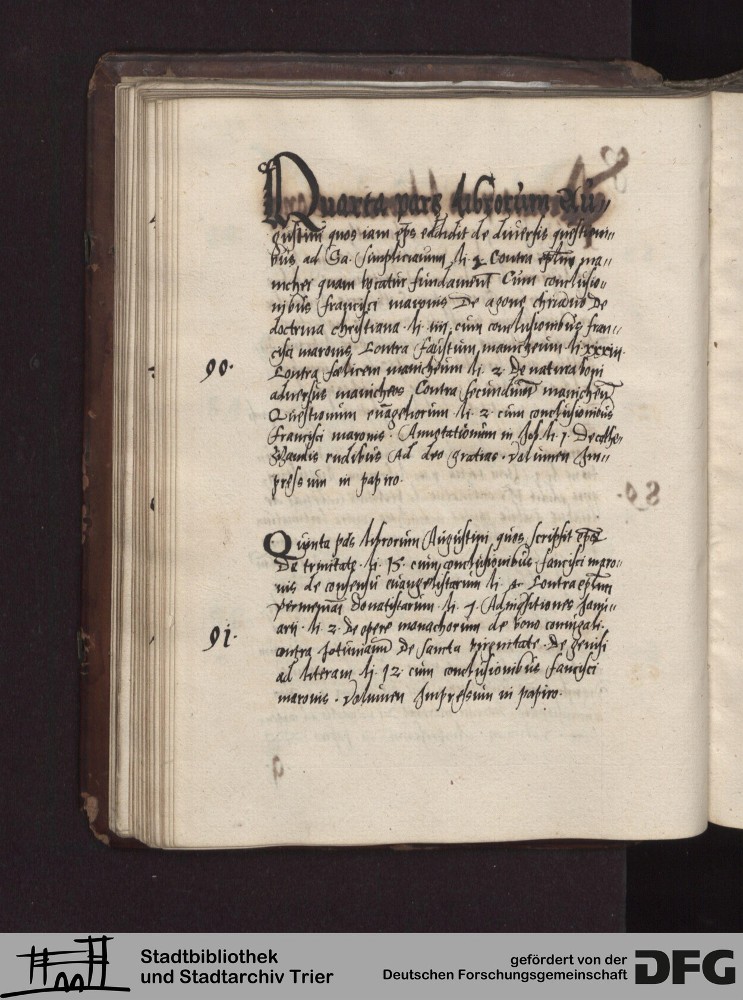 Quarta pars librorum Au„
gustini quos iam eps edidit de diuersis question„
bus ad Sa. simplicianum li. 2. Contra eplm ma„
nichei quam vocatur fundament Cum conclusio„
nibus francisci maronis De agone christiano De
doctrina christiana. li. iiii. cum conclusionibus fran„
cisci maronis. Contra faustum manicheum li xxxiii.
90.
Contra felicem manicheum li. 2. De natura boni
aduersus manicheos Contra secundum manicheu
Questionum euageliorum li. 2. cum conclusionibus
francisci maronis. Annotationum in Job. li. 1. De cathe„
zizandis rudibus Ad deo gratias. volumen Im„
pressum in papiro.
89.
Quinta pars librorum Augustini quos scripsit eps
De trinitate. li. 15. cum conclusionibus francisci maro„
nis de consensu euangelistarum li. 4. Contra eplam
permeniani donatistarum. li. 3. Ad inquisitiones Janu„
arii. li. 2. De opere monachorum de bono coniugali.
91.
contra Jouinianum De sancta virginitate. De genesi
ad literam li. 12. cum conclusionibus francisci
maronis. volumen Impressum in papiro.
Stadtbibliothek
und Stadtarchiv Trier
gefördert von der
Deutschen Forschungsgemeinschaft
DFG